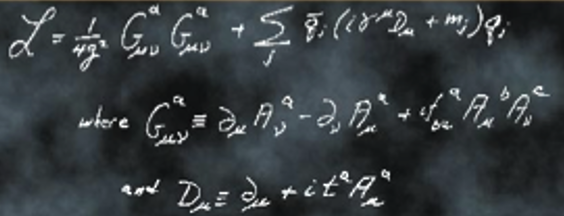 ℒ = 1/4g² G^a_μν G^a_μν + Σ_j q̄_j (iγ^μ D_μ + m_j) q_j
where G^a_μν ≡ ∂_μ A^a_ν - ∂_ν A^a_μ + i f^a_bc A^b_μ A^c_ν
and D_μ ≡ ∂_μ + i t^a A^a_μ